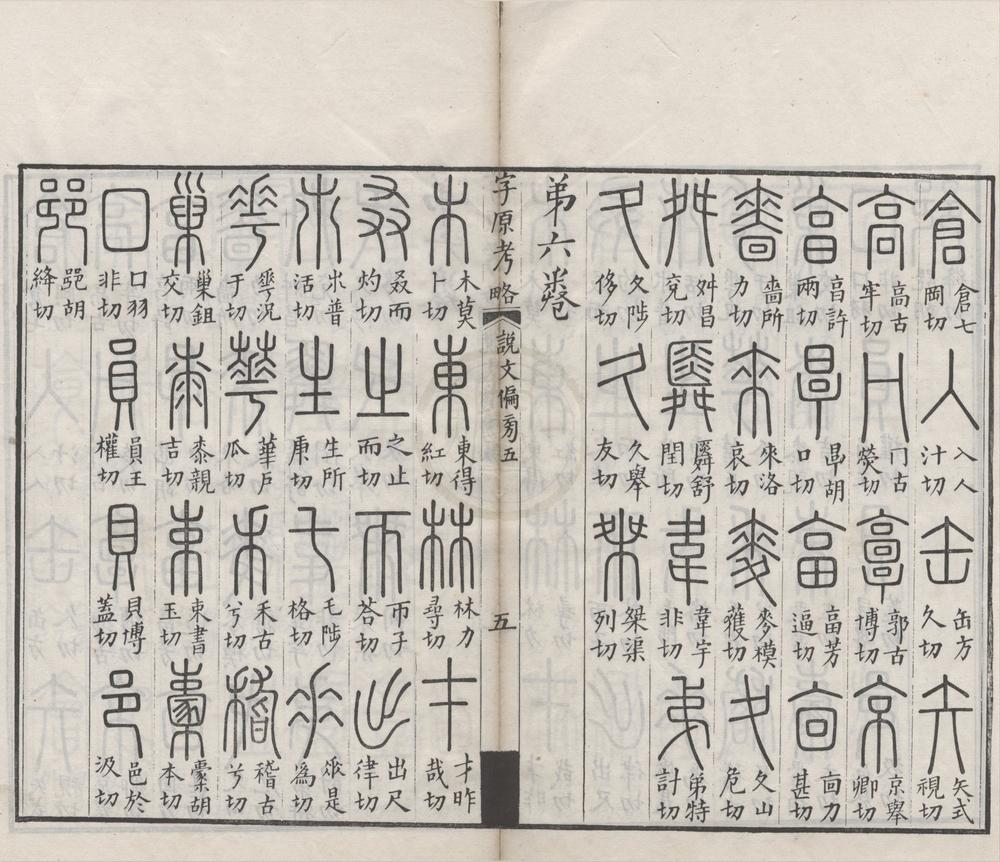 倉 倉七岡切 入 入人汁切 缶 缶方久切 矢 矢式視切
高 高古牢切 冂 冂古熒切 𩫏 郭古博切 京 京舉卿切
亯 亯許兩切 㫗 㫗胡口切 畗 畗芳逼切 㐭 㐭力甚切
嗇 嗇所力切 來 來洛哀切 麥 麥模獲切 夊 夊山危切
舛 舛昌兖切 䑞 䑞舒閏切 韋 韋宇非切 弟 弟特計切
夂 夂陟侈切 久 久舉友切 桀 桀渠列切
弟六卷
字原考略 說文偏旁五 五
木 木莫卜切 東 東得紅切 林 林力尋切 才 才昨哉切
叒 叒而灼切 之 之止而切 帀 帀子荅切 出 出尺律切
𣎵 𣎵普活切 生 生所庚切 乇 乇陟格切 𠂹 𠂹是為切
𠌶 𠌶況于切 華 華戶瓜切 禾 禾古兮切 稽 稽古兮切
巢 巢鉏交切 桼 桼親吉切 束 束書玉切 㯻 㯻胡本切
囗 囗羽非切 員 員王權切 貝 貝博蓋切 邑 邑於汲切
𨛜 𨛜胡絳切